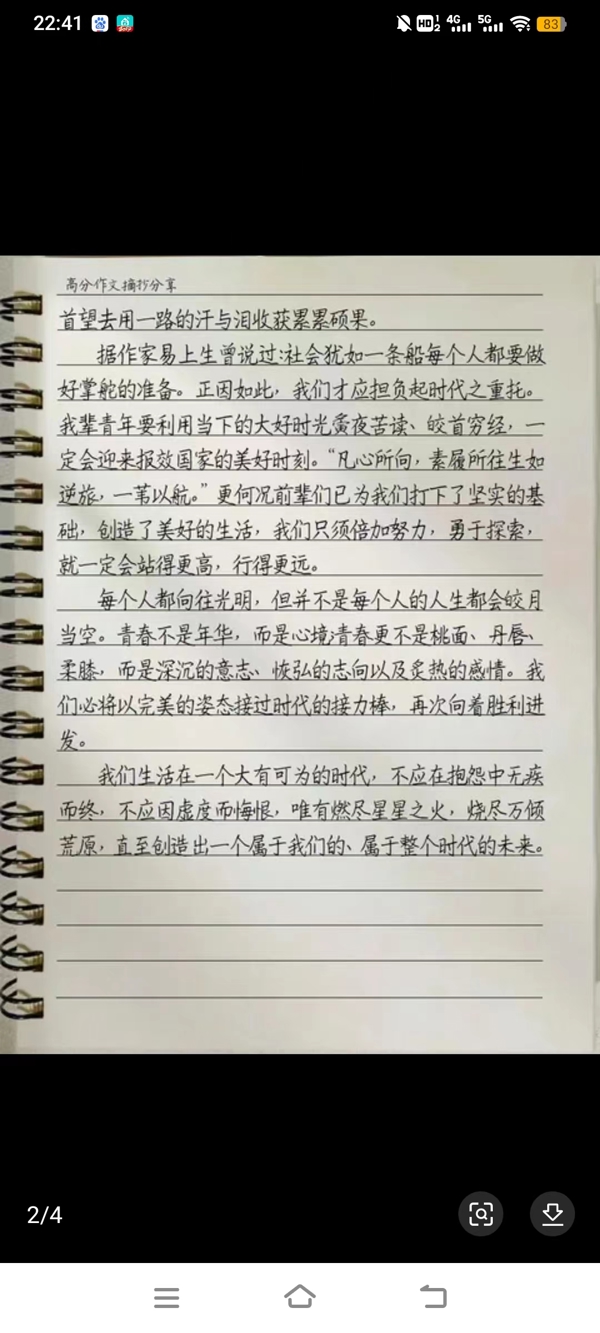 22:41
HD 1 2 4G 5G 83
高分作文摘抄分享
首望去用一路的汗与泪收获累累硕果。
据作家易上生曾说过:社会犹如一条船每个人都要做
好掌舵的准备。正因如此，我们才应担负起时代之重托。
我辈青年要利用当下的大好时光夤夜苦读、皎首穷经，一
定会迎来报效国家的美好时刻。“凡心所向，素履所往生如
逆旅，一苇以航。”更何况前辈们已为我们打下了坚实的基
础，创造了美好的生活，我们只须倍加努力，勇于探索，
就一定会站得更高，行得更远。
每个人都向往光明，但并不是每个人的人生都会皎月
当空。青春不是年华，而是心境;青春更不是桃面、丹唇、
柔膝，而是深沉的意志、恢弘的志向以及炙热的感情。我
们必将以完美的姿态接过时代的接力棒，再次向着胜利进
发。
我们生活在一个大有可为的时代，不应在抱怨中无疾
而终，不应因虚度而悔恨，唯有燃尽星星之火，烧尽万倾
荒原，直至创造出一个属于我们的、属于整个时代的未来。
2/4